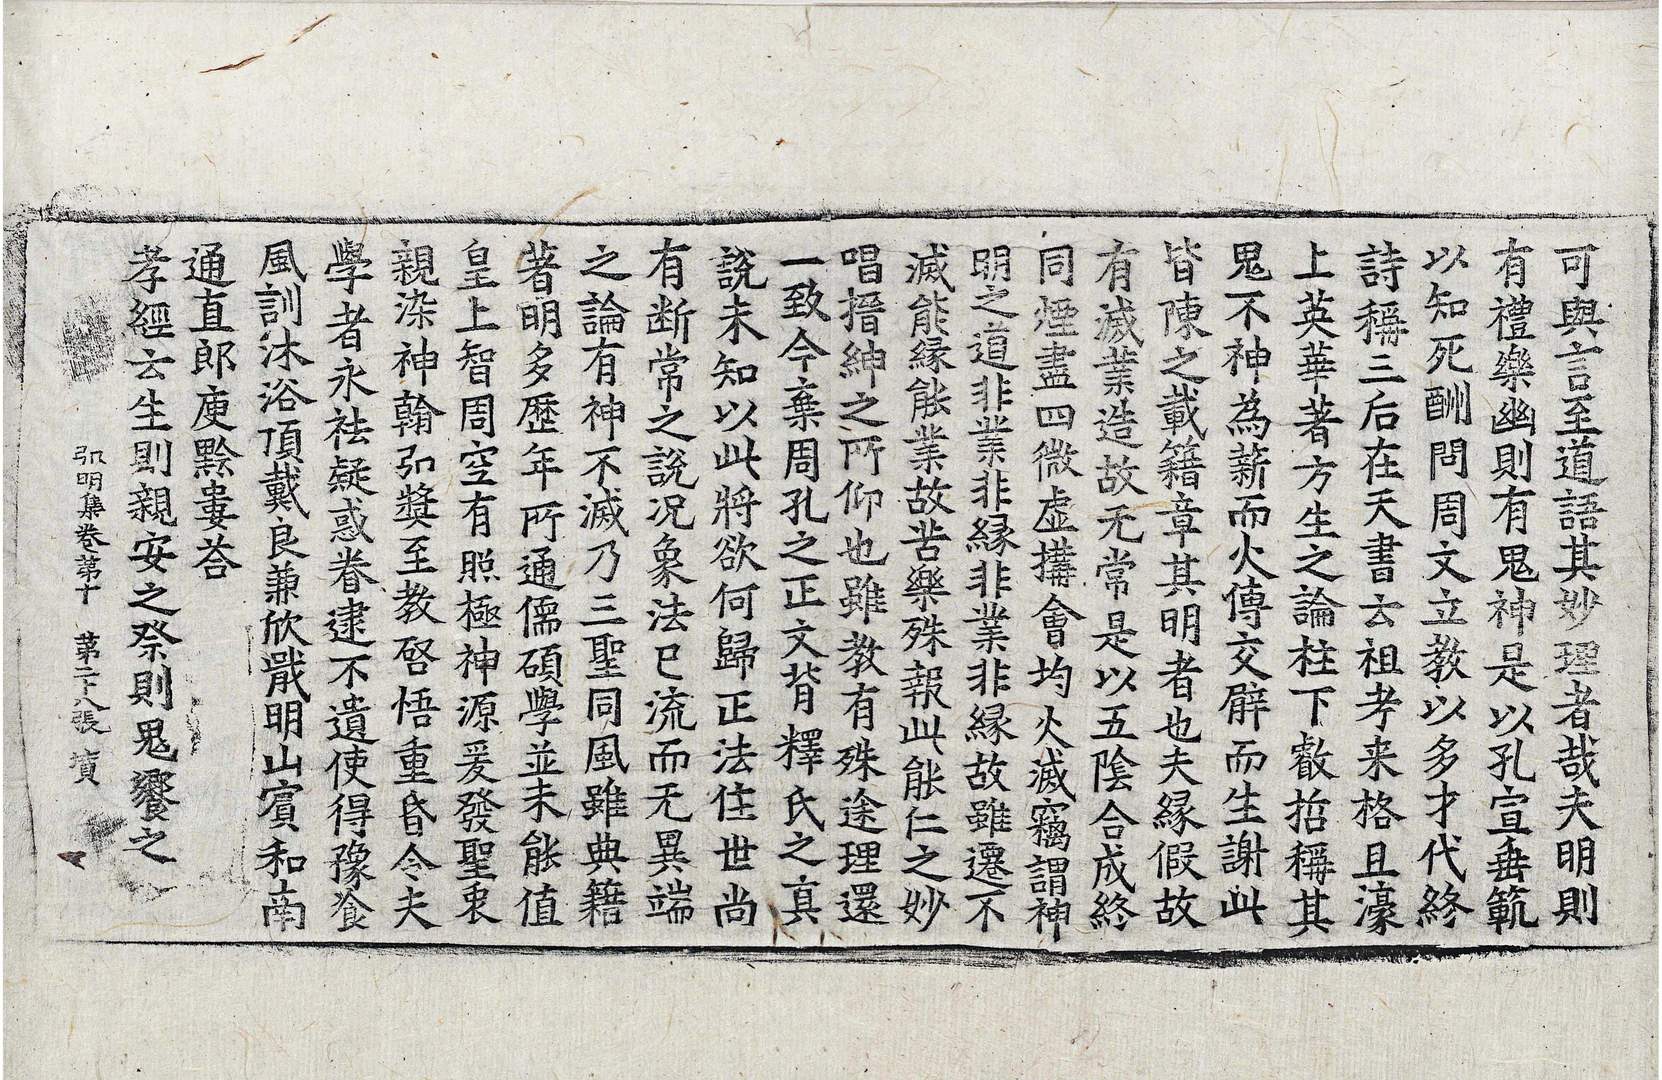 可與言至道語其妙理者哉夫明則
有禮樂幽則有鬼神是以孔宣垂範
以知死酬問周文立教以多才代終
詩稱三后在天書云祖考来格且濠
上英華著方生之論柱下叡哲稱其
鬼不神為薪而火傳交臂而生謝此
皆陳之載籍章其明者也夫緣假故
有滅業造故无常是以五陰合成終
同煙盡四微虛搆會均火滅竊謂神
明之道非業非緣非業非緣故雖遷不
滅能緣能業故苦樂殊報此能仁之妙
唱搢紳之所仰也雖教有殊途理還
一致今棄周孔之正文背釋氏之真
說未知以此將欲何歸正法住世尚
有断常之說况象法已流而无異端
之論有神不滅乃三聖同風雖典籍
著明多歷年所通儒碩學並未能值
皇上智周空有照極神源爰發聖衷
親染神翰弘獎至教啓悟重昏令夫
學者永袪疑惑眷逮不遺使得豫飡
風訓沐浴頂戴良兼欣戢明山賓和南
通直郎庾黔婁荅
孝經云生則親安之祭則鬼饗之
弘明集卷第十　第二十八張　墳